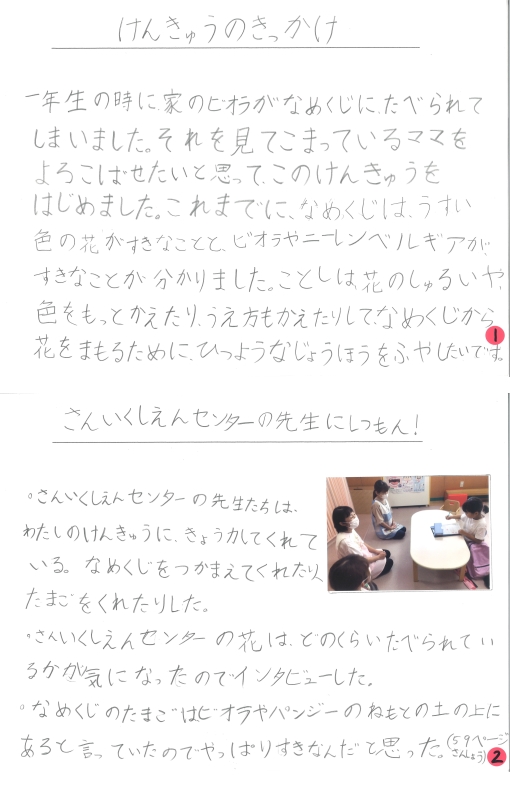 けんきゅうのきっかけ
一年生の時に、家のビオラがなめくじに、たべられて
しまいました。それを見てこまっているママを
よろこばせたいと思って、このけんきゅうを
はじめました。これまでに、なめくじは、うすい
色の花がすきなことと、ビオラやニーレンベルギアが、
すきなことが分かりました。ことしは、花のしゅるいや、
色をもっとかえたり、うえ方もかえたりして、なめくじから
花をまもるために、ひつようなじょうほうをふやしたいです。
1
さんいくしえんセンターの先生にしつもん!
。さんいくしえんセンターの先生たちは、
わたしのけんきゅうに、きょう力してくれて
いる。なめくじをつかまえてくれたり、
たまごをくれたりした。
。さんいくしえんセンターの花は、どのくらいたべられてい
るかが気になったのでインタビューした。
。なめくじのたまごはビオラやパンジーのねもとの土の上に
あると言っていたのでやっぱりすきなんだと思った。(59ページ
さんしょう)
2